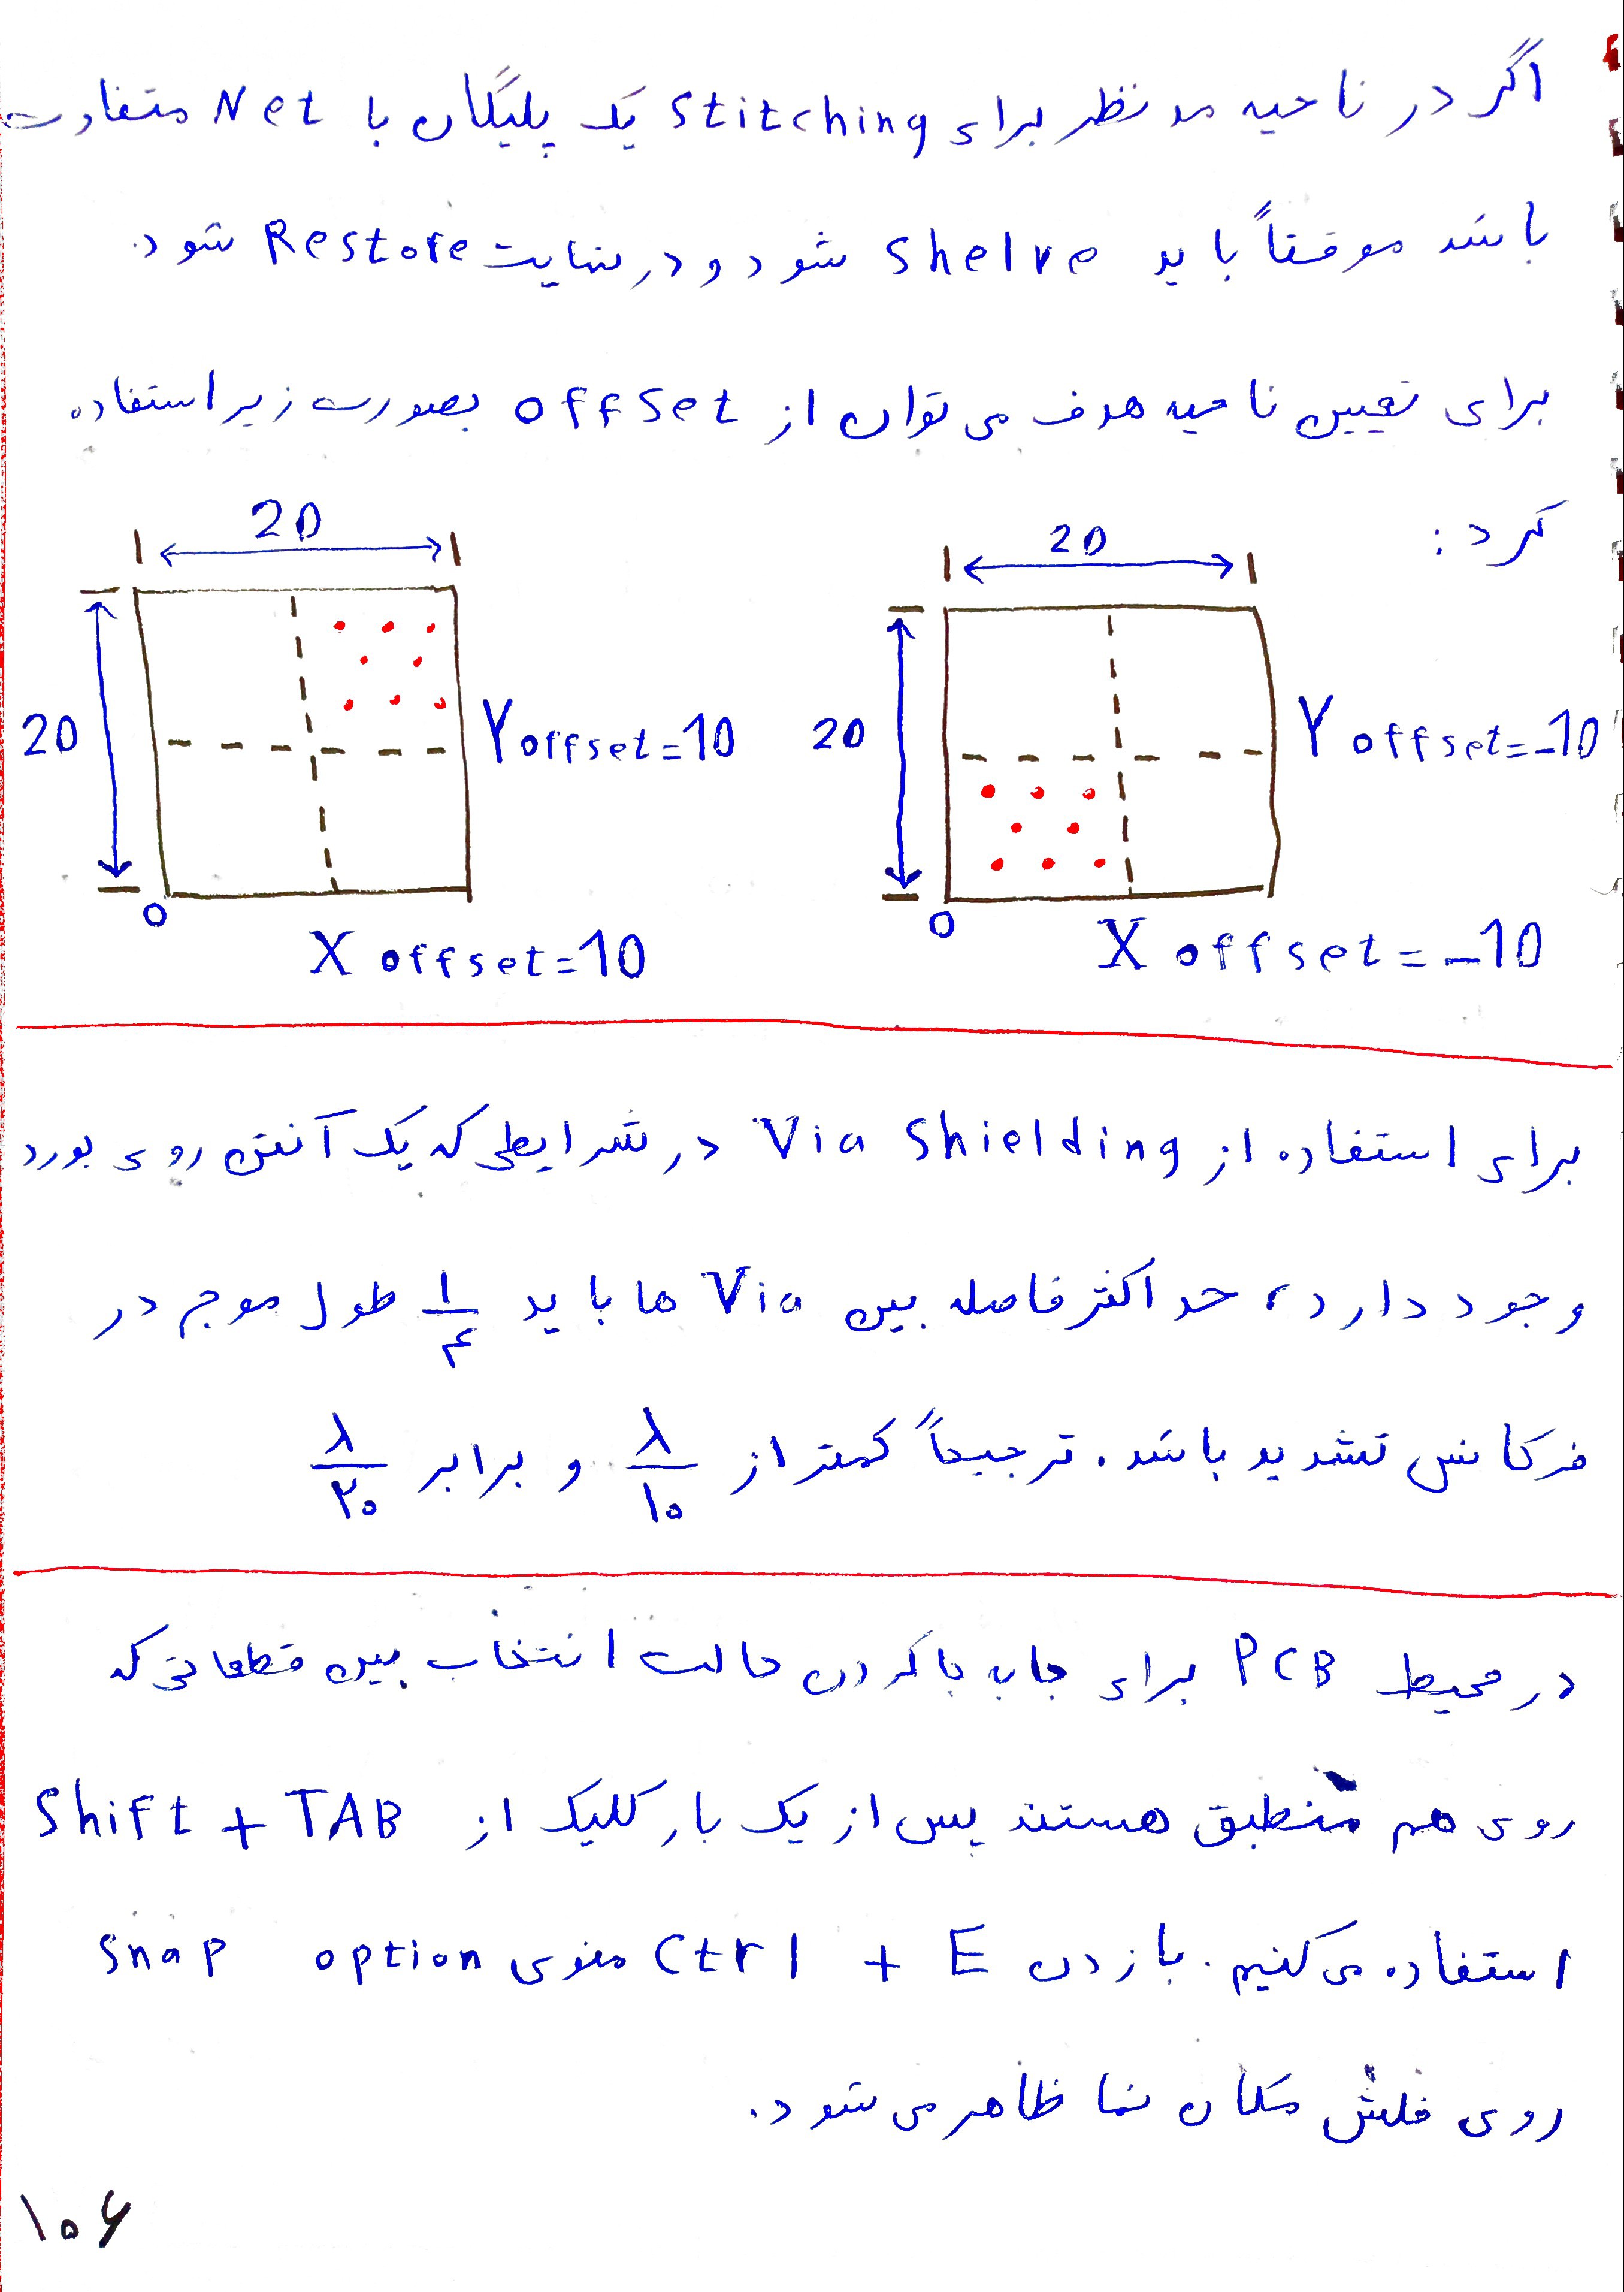 اگر در ناحیه مد نظر برای Stitching یک پلیگان با Net متفاوت
باشد موقتاً باید Shelve شود و در نهایت Restore شود.
برای تعیین ناحیه هدف می توان از offset بصورت زیر استفاده
کرد:
20
20
20
Yoffset=10
20
Y offset=-10
0
0
X offset=10
X offset=-10
برای استفاده از Via Shielding در شرایطی که یک آنتن روی بورد
وجود دارد، حداکثر فاصله بین Via ها باید ۱/۴ طول موج در
فرکانس تشدید باشد. ترجیحاً کمتر از λ/۱۰ و برابر λ/۲۰
در محیط PCB برای جاب جا کردن حالت انتخاب بین قطعاتی که
روی هم منطبق هستند پس از یک بار کلیک از Shift + TAB
استفاده می کنیم. با زدن Ctrl + E منوی snap option
روی فلش مکان نما ظاهر می شود.
۱۰۶